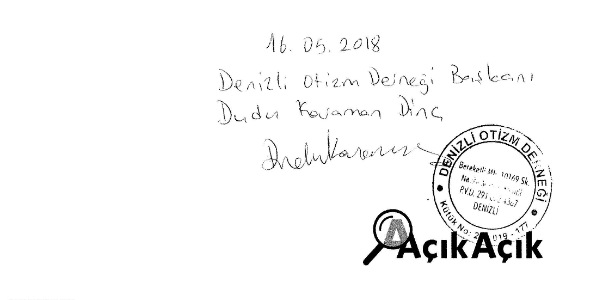 16.05.2018
Denizli Otizm Derneği Başkanı
Dudu Karaman Dinç
DENİZLİ OTİZM DERNEĞİ
Bereketli Mh. 10169 Sk.
P.V.D. 291
DENİZLİ
Kütük No: 019 - 177
AçıkAçık